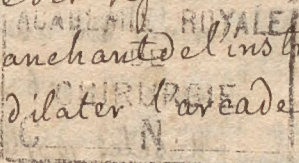 ACADÉMIE ROYALE
anchant de l'inst
CHIRURGIE
dilater l'arcade
C N